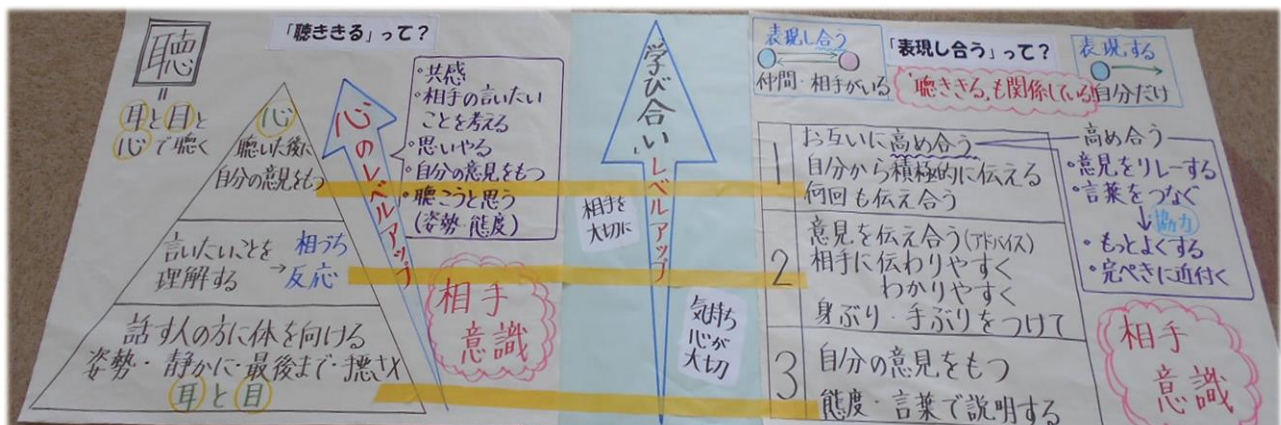 聴
「聴ききる」って?
=
耳と目と
心で聴く
心
聴いた後に
自分の意見をもつ
言いたいことを
理解する
→
相づち
反応
話す人の方に体を向ける
姿勢・静かに・最後まで・聴き×
耳と目
心のレベルアップ
・共感
・相手の言いたい
ことを考える
・思いやる
・自分の意見をもつ
・聴こうと思う
(姿勢・態度)
相手
意識
学び合いレベルアップ
相手を
大切に
気持ち
心が
大切
表現し合う
仲間・相手がいる
「表現し合う」って?
"聴ききる"も関係している!
表現する
自分だけ
1
お互いに高め合う
自分から積極的に伝える
何回も伝え合う
2
意見を伝え合う(アドバイス)
相手に伝わりやすく
わかりやすく
身ぶり・手ぶりをつけて
3
自分の意見をもつ
態度・言葉で説明する
高め合う
・意見をリレーする
・言葉をつなぐ
↓協力
・もっとよくする
・完ぺきに近付く
相手
意識